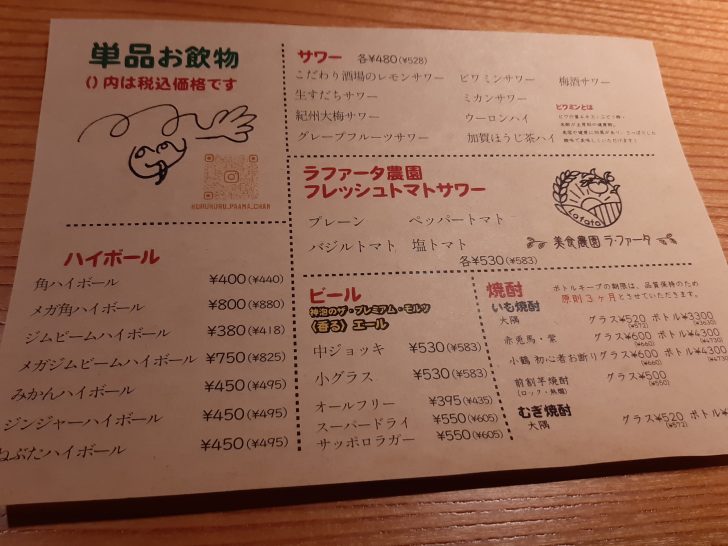 単品お飲物
()内は税込価格です
KURUKURU_PAAMA_CHAN
サワー 各¥480(¥528)
こだわり酒場のレモンサワー ビワミンサワー 梅酒サワー
生すだちサワー ミカンサワー
紀州大梅サワー ウーロンハイ
グレープフルーツサワー 加賀ほうじ茶ハイ
ビワミンとは
ラファータ農園
フレッシュトマトサワー
プレーン ペッパートマト
バジルトマト 塩トマト
各¥530(¥583)
Lafata
美食農園 ラ・ファータ
ハイボール
角ハイボール ¥400(¥440)
メガ角ハイボール ¥800(¥880)
ジムビームハイボール ¥380(¥418)
メガジムビームハイボール ¥750(¥825)
みかんハイボール ¥450(¥495)
ジンジャーハイボール ¥450(¥495)
ねぶたハイボール ¥450(¥495)
ビール
神泡のザ・プレミアム・モルツ
〈香る〉エール
中ジョッキ ¥530(¥583)
小グラス ¥530(¥583)
オールフリー ¥395(¥435)
スーパードライ ¥550(¥605)
サッポロラガー ¥550(¥605)
焼酎
ボトルキープの期限は、品質保持のため
原則3ヶ月とさせていただきます。
いも焼酎
大隅 グラス¥520 ボトル¥3300
(¥572) (¥3630)
赤兎馬・紫 グラス¥600 ボトル¥4300
(¥660) (¥4730)
小鶴 初心者お断り グラス¥600 ボトル¥4300
(¥660) (¥4730)
前割芋焼酎 グラス¥500
(ロック・熱燗) (¥550)
むぎ焼酎
大隅 グラス¥520 ボトル¥
(¥572)